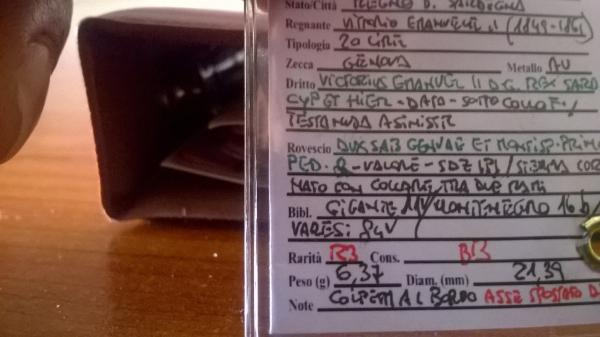 Stato/Città REGNO D. SARDEGNA
Regnante VITTORIO EMANUELE II (1849-1861)
Tipologia 20 LIRE
Zecca GENOVA Metallo AU
Dritto VICTORIUS EMANUEL II D.G. REX SARD
CYP ET HIER - DATA - SOTTO COLLO F./
TESTA NUDA A SINISTR
Rovescio DUX SAB GENUAE ET MONTISF. PRINC
PED. & - VALORE - /STEMMA COR
NATO CON COLLARE, TRA DUE RAMI
Bibl. GIGANTE MONTENEGRO 16
VARESI
Rarità R3 Cons. BB
Peso (g) 6,37 Diam. (mm) 21,39
Note COLPETTI AL BORDO ASSE SPOSTATO D